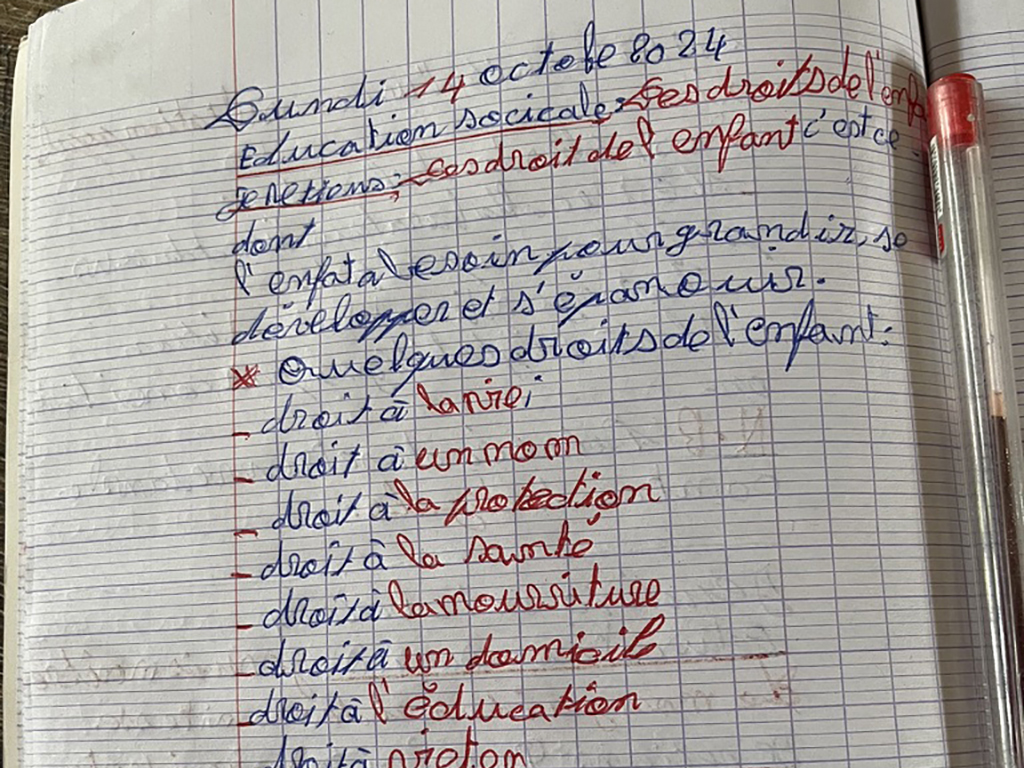 Lundi 14 octobe 2024
Education socicale: Les droits de l'enfa
Les droit de l'enfant c'est ce
dont
l'enfat a besoin pour grandir, se
développer et s'épanouir.
* Quelques droits de l'enfant:
- droit à la vie;
- droit à un nom
- droit à la protection
- droit à la santé
- droit à la nourriture
- droit à un domicile
- droit à l'éducation
droit à